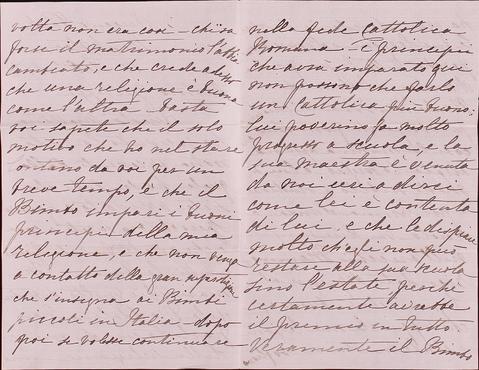 volta non era così - chi sa
forse il matrimonio l'abbia
cambiato, e che creda adesso
che una religione è buona
come l'altra - Basta
voi sapete che il solo
motivo che ho nel stare
lontano da voi per un
breve tempo, è che il
Bimbo impari i buoni
principi della mia
religione, e che non venga
a contatto della gran superstizione
che s'insegna ai Bimbi
piccoli in Italia - dopo
poi se volesse continuare
nella fede Cattolica
Romana - i principii
che avrà imparato qui
non possono che farlo
un Cattolico più buono;
lui poverino fa molto
progresso a scuola, e la
sua maestra è venuta
da noi ieri a dirci
come lei è contenta
di lui, e che le dispiace
molto ch'egli non può
restare alla sua scuola
sino l'estate, perchè
certamente avrebbe
il premio in tutto.
Veramente il Bimbo